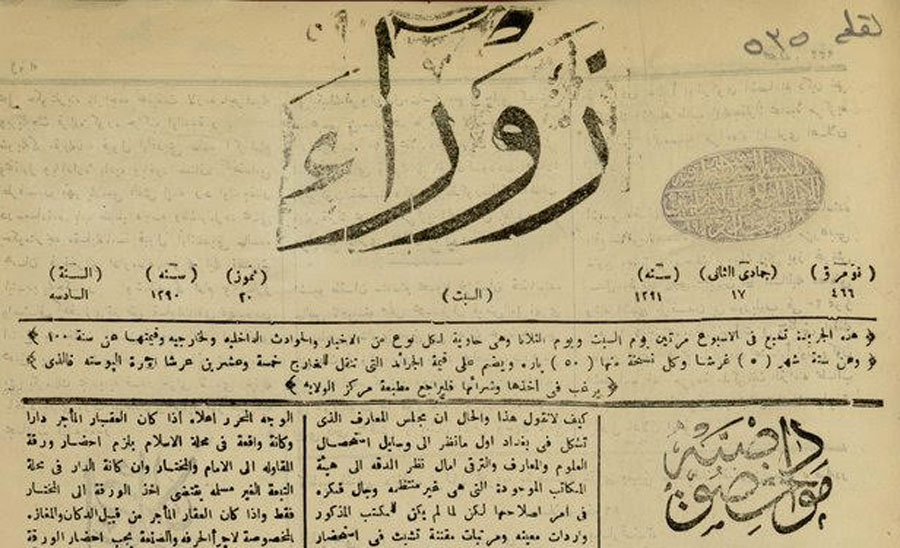 زوراء
( نومرو ) ٤٦٦ ( جمادى الثانى ) ١٧ ( سنه ) ١٢٩١ ( السبت ) ( تموز ) ٢٠ ( سنه ) ١٢٩٠ ( السنة ) السادسه
هذه الجريدة تطبع فى الاسبوع مرتين يوم السبت ويوم الثلاثا وهى حاوية لكل نوع من الاخبار والحوادث الداخليه والخارجيه وقيمتها عن سنة ١٠٠
وعن ستة شهر ( ٥ ) غرشا وكل نسخة منها ( ٥٠ ) پاره ويضم على قيمة الجرائد التى تنقل للخارج خمسة وعشرين غرشا اجرة البوسته فالذى
يرغب فى اخذها وشرائها فليراجع مطبعة مركز الولايه
مواد خصوصيه
كيف لانقول هذا والحال ان مجلس المعارف الذى
تشكل فى بغداد اول مانظر الى وسايل استحصال
العلوم والمعارف والترقى امال نظر الدقه الى هيئة
المكاتب الموجودة التى هى غير منتظمه وجال فكره
فى امر اصلاحها لكن لما لم يكن للمكتب المذكور
واردات معينه ومرتبات مقننة تشبث فى استحضار
الوجه المحرر اعلاه اذا كان العقار المأجر دارا
وكانة واقعة فى محلة الاسلام يلزم احضار ورقة
المقاوله الى الامام والمختار وان كانة الدار فى محلة
التبعة الغير مسلمه يقتضى اخذ الورقة الى المختار
فقط واذا كان العقار المأجر من قبيل الدكان والمغازه
المخصوصة لاجرآ الحرفه والصنعة يجب احضار الورقة